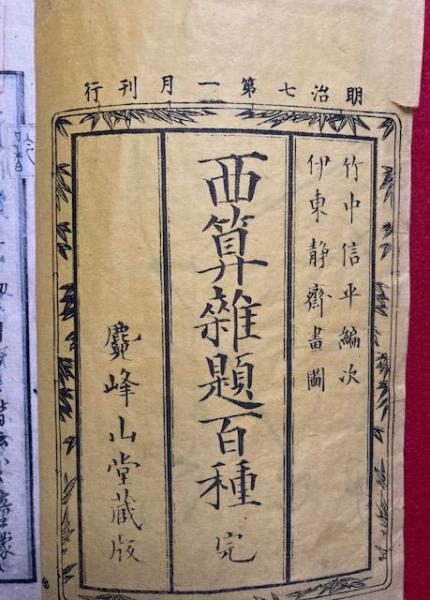 明治七第一月刊行
竹中信平編次
伊東静齋畫圖
西算雜題百種 完
麑峰山堂藏版